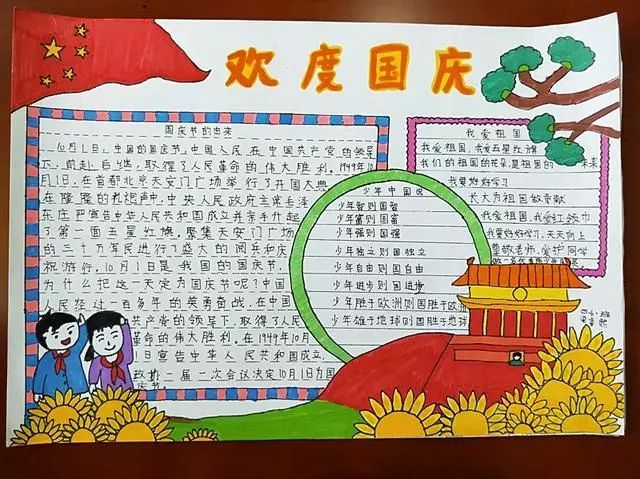 欢度国庆
国庆节的由来
10月1日,中国的国庆节,中国人民在中国共产党的领导
下,前赴后继,取得了人民革命的伟大胜利。1949年10
月1日,在首都北京天安门广场举行了开国大典
在隆隆的礼炮声中,中央人民政府主席毛泽
东庄严宣告中华人民共和国成立并亲手升起
了第一面五星红旗。聚集天安门广场
的三十万军民进行了盛大的阅兵和庆
祝游行,10月1日是我国的国庆节,
为什么把这一天定为国庆节呢?中国
人民经过一百多年的英勇奋战,在中国
共产党的领导下,取得了人民
革命的伟大胜利。在1949年10月
1日宣告中华人民共和国成立,
政协一届一次会议决定10月1日为国
庆节。
少年中国说
少年智则国智
少年富则国富
少年强则国强
少年独立则国独立
少年自由则国自由
少年进步则国进步
少年胜于欧洲则国胜于欧洲
少年雄于地球则国胜于地球
我爱祖国
我爱祖国,我爱五星红旗
我们的祖国的花朵,是祖国的未来
我要好好学习
长大为祖国做贡献
我爱祖国,我爱红领巾
我要好好学习,天天向上
尊敬老师,爱护同学